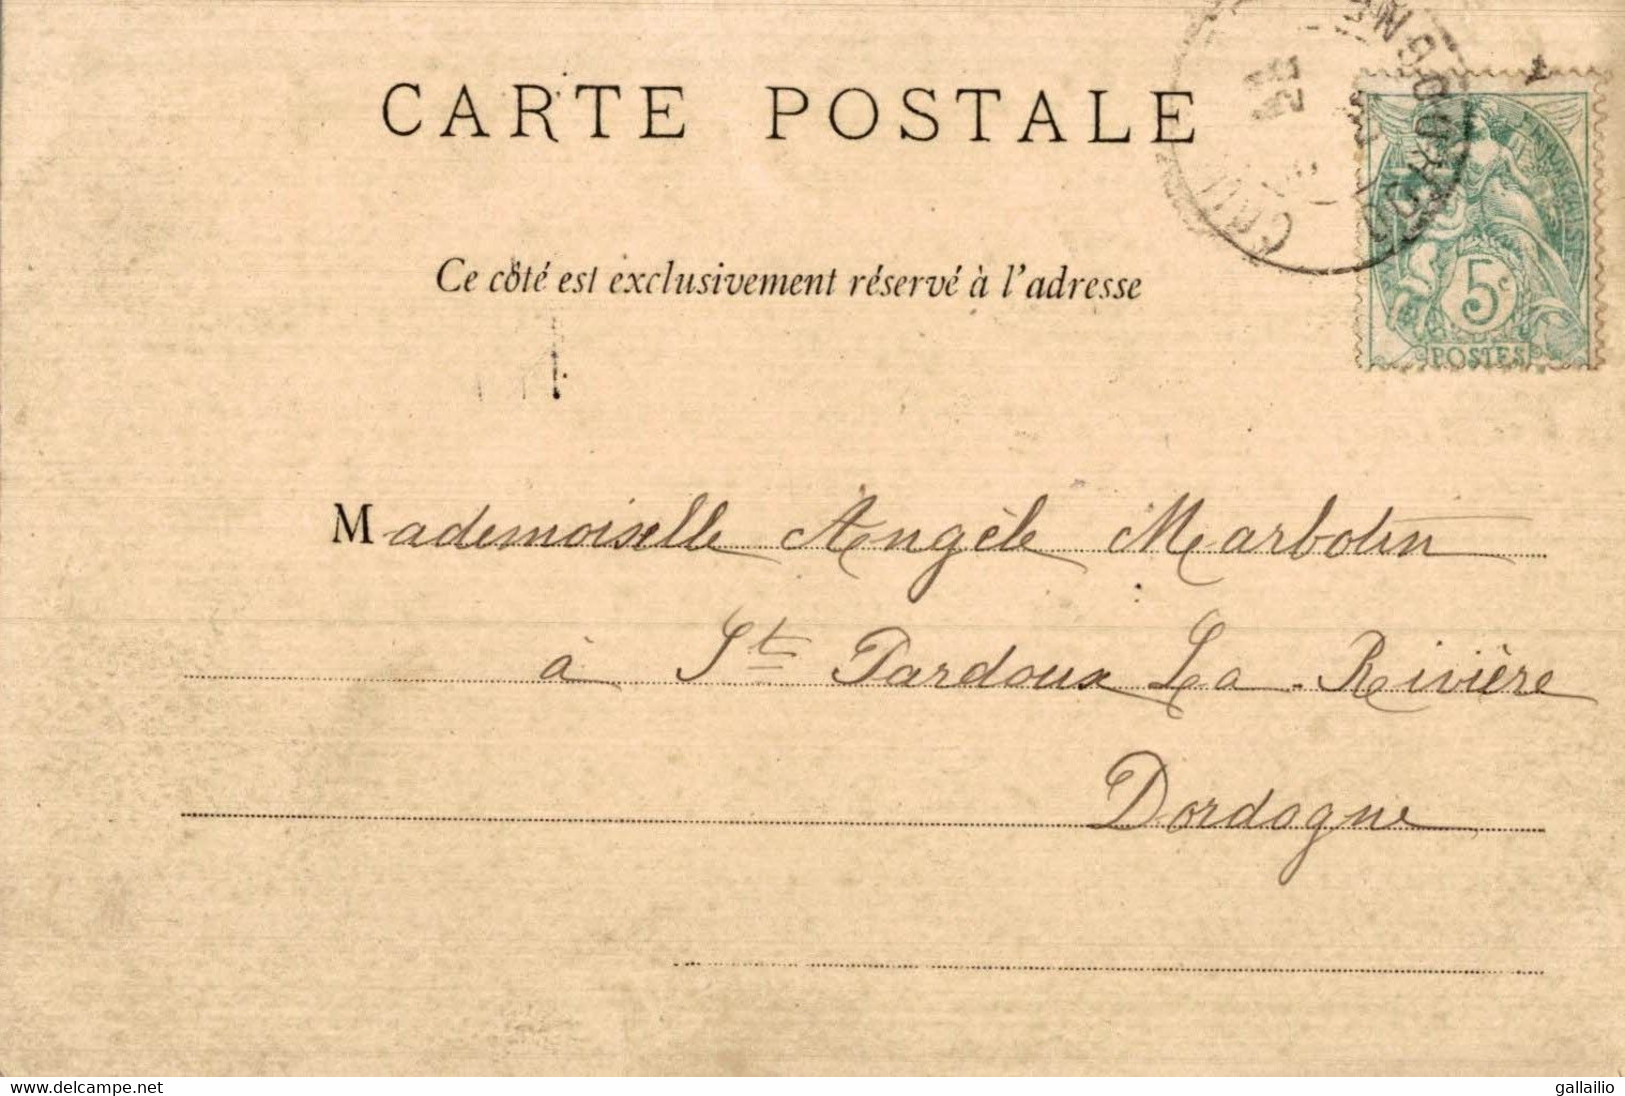 CARTE POSTALE
Ce côté est exclusivement réservé à l'adresse
5c
POSTES
Mademoiselle Angèle Marbotin
à St Pardoux La Rivière
Dordogne
delcampe.net
gallailio